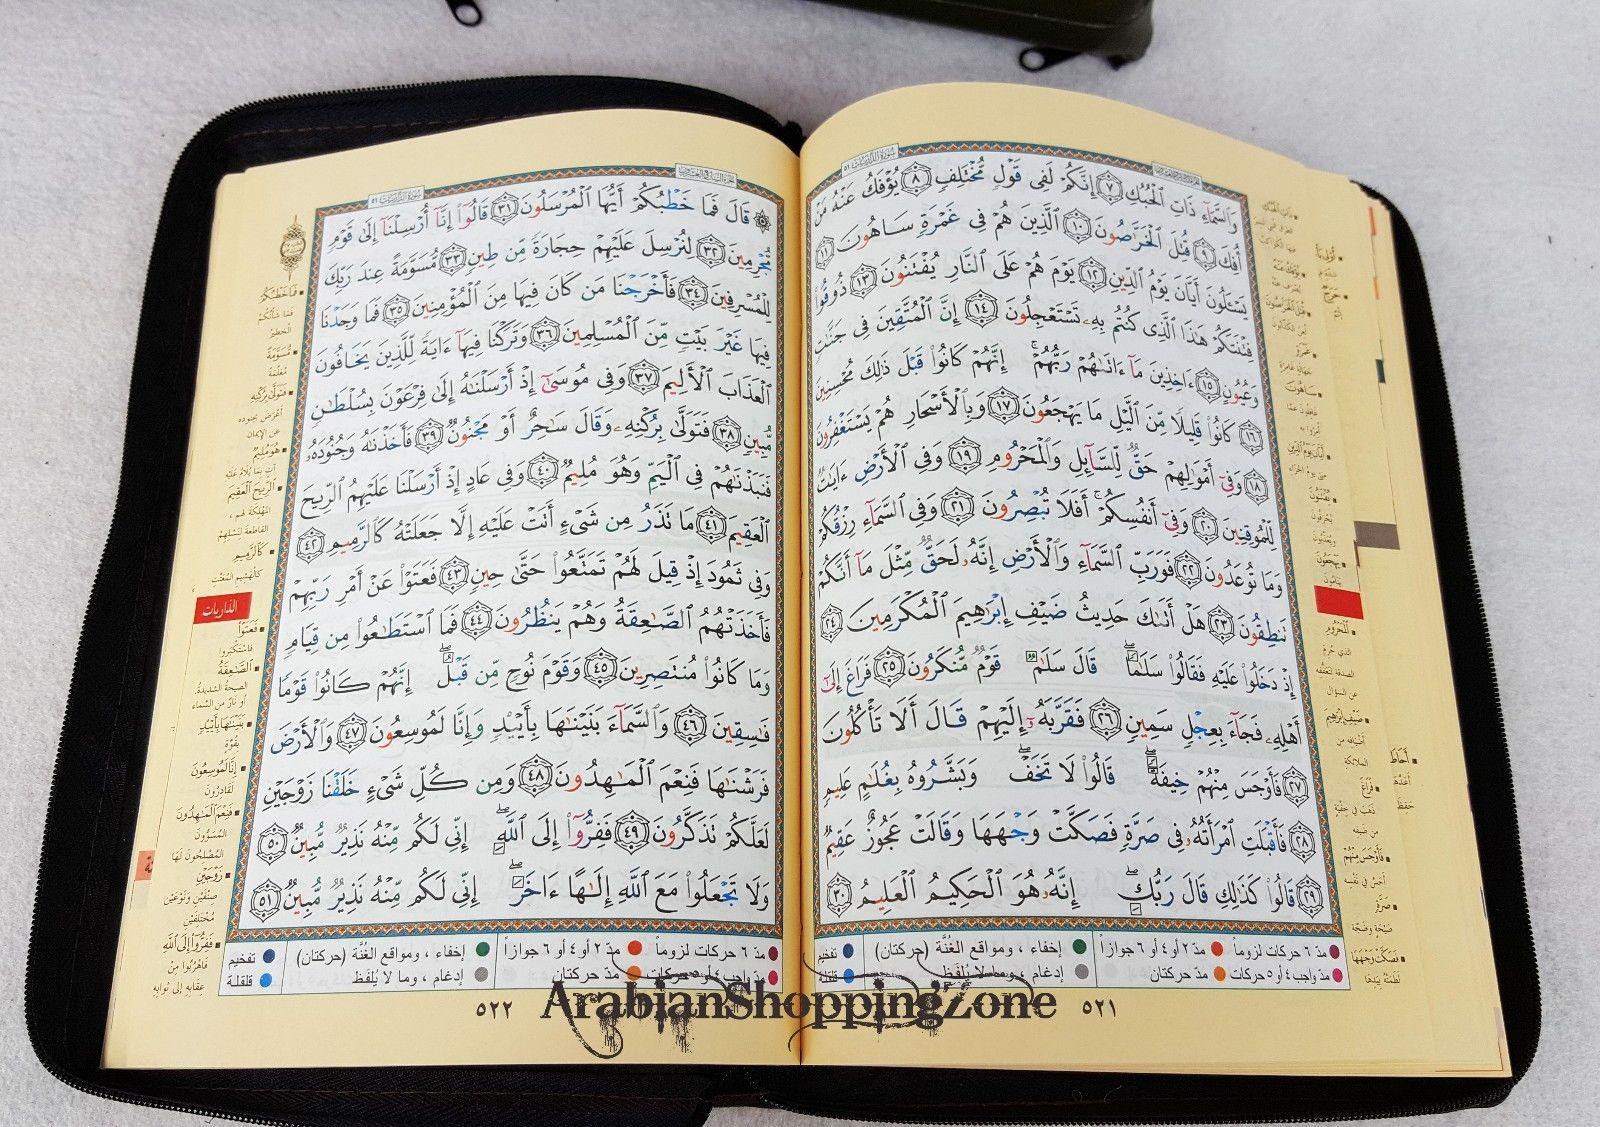 سورة الذاريات ٥١
وَٱلسَّمَآءِ ذَاتِ ٱلْحُبُكِ ٧ إِنَّكُمْ لَفِى قَوْلٍ مُّخْتَلِفٍ ٨ يُؤْفَكُ عَنْهُ مَنْ
أُفِكَ ٩ قُتِلَ ٱلْخَرَّٰصُونَ ١٠ ٱلَّذِينَ هُمْ فِى غَمْرَةٍ سَاهُونَ ١١
يَسْـَٔلُونَ أَيَّانَ يَوْمُ ٱلدِّينِ ١٢ يَوْمَ هُمْ عَلَى ٱلنَّارِ يُفْتَنُونَ ١٣ ذُوقُوا۟
فِتْنَتَكُمْ هَٰذَا ٱلَّذِى كُنتُم بِهِۦ تَسْتَعْجِلُونَ ١٤ إِنَّ ٱلْمُتَّقِينَ فِى جَنَّٰتٍ
وَعُيُونٍ ١٥ ءَاخِذِينَ مَآ ءَاتَىٰهُمْ رَبُّهُمْ ۚ إِنَّهُمْ كَانُوا۟ قَبْلَ ذَٰلِكَ مُحْسِنِينَ
١٦ كَانُوا۟ قَلِيلًا مِّنَ ٱلَّيْلِ مَا يَهْجَعُونَ ١٧ وَبِٱلْأَسْحَارِ هُمْ يَسْتَغْفِرُونَ
١٨ وَفِىٓ أَمْوَٰلِهِمْ حَقٌّ لِّلسَّآئِلِ وَٱلْمَحْرُومِ ١٩ وَفِى ٱلْأَرْضِ ءَايَٰتٌ
لِّلْمُوقِنِينَ ٢٠ وَفِىٓ أَنفُسِكُمْ ۚ أَفَلَا تُبْصِرُونَ ٢١ وَفِى ٱلسَّمَآءِ رِزْقُكُمْ
وَمَا تُوعَدُونَ ٢٢ فَوَرَبِّ ٱلسَّمَآءِ وَٱلْأَرْضِ إِنَّهُۥ لَحَقٌّ مِّثْلَ مَآ أَنَّكُمْ
تَنطِقُونَ ٢٣ هَلْ أَتَىٰكَ حَدِيثُ ضَيْفِ إِبْرَٰهِيمَ ٱلْمُكْرَمِينَ ٢٤
إِذْ دَخَلُوا۟ عَلَيْهِ فَقَالُوا۟ سَلَٰمًا ۖ قَالَ سَلَٰمٌ قَوْمٌ مُّنكَرُونَ ٢٥ فَرَاغَ إِلَىٰٓ
أَهْلِهِۦ فَجَآءَ بِعِجْلٍ سَمِينٍ ٢٦ فَقَرَّبَهُۥٓ إِلَيْهِمْ قَالَ أَلَا تَأْكُلُونَ
٢٧ فَأَوْجَسَ مِنْهُمْ خِيفَةً ۖ قَالُوا۟ لَا تَخَفْ ۖ وَبَشَّرُوهُ بِغُلَٰمٍ عَلِيمٍ
٢٨ فَأَقْبَلَتِ ٱمْرَأَتُهُۥ فِى صَرَّةٍ فَصَكَّتْ وَجْهَهَا وَقَالَتْ عَجُوزٌ عَقِيمٌ
٢٩ قَالُوا۟ كَذَٰلِكِ قَالَ رَبُّكِ ۖ إِنَّهُۥ هُوَ ٱلْحَكِيمُ ٱلْعَلِيمُ ٣٠
مدّ ٦ حركات لزوماً مدّ ٢ أو ٤ أو ٦ جوازاً إخفاء ، ومواقع الغُنَّة (حركتان) تفخيم
مدّ واجب ٤ أو ٥ حركات مدّ حركتان إدغام ، وما لا يُلفَظ قلقلة
٥٢١
سورة الذاريات ٥١
قَالَ فَمَا خَطْبُكُمْ أَيُّهَا ٱلْمُرْسَلُونَ ٣١ قَالُوٓا۟ إِنَّآ أُرْسِلْنَآ إِلَىٰ قَوْمٍ
مُّجْرِمِينَ ٣٢ لِنُرْسِلَ عَلَيْهِمْ حِجَارَةً مِّن طِينٍ ٣٣ مُّسَوَّمَةً عِندَ رَبِّكَ
لِلْمُسْرِفِينَ ٣٤ فَأَخْرَجْنَا مَن كَانَ فِيهَا مِنَ ٱلْمُؤْمِنِينَ ٣٥ فَمَا وَجَدْنَا
فِيهَا غَيْرَ بَيْتٍ مِّنَ ٱلْمُسْلِمِينَ ٣٦ وَتَرَكْنَا فِيهَآ ءَايَةً لِّلَّذِينَ يَخَافُونَ
ٱلْعَذَابَ ٱلْأَلِيمَ ٣٧ وَفِى مُوسَىٰٓ إِذْ أَرْسَلْنَٰهُ إِلَىٰ فِرْعَوْنَ بِسُلْطَٰنٍ
مُّبِينٍ ٣٨ فَتَوَلَّىٰ بِرُكْنِهِۦ وَقَالَ سَٰحِرٌ أَوْ مَجْنُونٌ ٣٩ فَأَخَذْنَٰهُ وَجُنُودَهُۥ
فَنَبَذْنَٰهُمْ فِى ٱلْيَمِّ وَهُوَ مُلِيمٌ ٤٠ وَفِى عَادٍ إِذْ أَرْسَلْنَا عَلَيْهِمُ ٱلرِّيحَ
ٱلْعَقِيمَ ٤١ مَا تَذَرُ مِن شَىْءٍ أَتَتْ عَلَيْهِ إِلَّا جَعَلَتْهُ كَٱلرَّمِيمِ ٤٢
وَفِى ثَمُودَ إِذْ قِيلَ لَهُمْ تَمَتَّعُوا۟ حَتَّىٰ حِينٍ ٤٣ فَعَتَوْا۟ عَنْ أَمْرِ رَبِّهِمْ
فَأَخَذَتْهُمُ ٱلصَّٰعِقَةُ وَهُمْ يَنظُرُونَ ٤٤ فَمَا ٱسْتَطَٰعُوا۟ مِن قِيَامٍ
وَمَا كَانُوا۟ مُنتَصِرِينَ ٤٥ وَقَوْمَ نُوحٍ مِّن قَبْلُ ۖ إِنَّهُمْ كَانُوا۟ قَوْمًا
فَٰسِقِينَ ٤٦ وَٱلسَّمَآءَ بَنَيْنَٰهَا بِأَيْي۟دٍ وَإِنَّا لَمُوسِعُونَ ٤٧ وَٱلْأَرْضَ
فَرَشْنَٰهَا فَنِعْمَ ٱلْمَٰهِدُونَ ٤٨ وَمِن كُلِّ شَىْءٍ خَلَقْنَا زَوْجَيْنِ
لَعَلَّكُمْ تَذَكَّرُونَ ٤٩ فَفِرُّوٓا۟ إِلَى ٱللَّهِ ۖ إِنِّى لَكُم مِّنْهُ نَذِيرٌ مُّبِينٌ ٥٠
وَلَا تَجْعَلُوا۟ مَعَ ٱللَّهِ إِلَٰهًا ءَاخَرَ ۖ إِنِّى لَكُم مِّنْهُ نَذِيرٌ مُّبِينٌ ٥١
فَمَا خَطْبُكُمْ
فما شأنكم
الخطير
مُسَوَّمَةً
معلّمة
فَتَوَلَّى بِرُكْنِهِ
أعرض بجنوده
عن الإيمان
هُوَ مُلِيمٌ
آتٍ بما يُلام عليه
الرِّيحَ الْعَقِيمَ
المهلكة لهم ،
القاطعة لنسلهم
كَالرَّمِيمِ
كالهشيم المفتّت
الذاريات
فَعَتَوْا
فاستكبروا
الصَّاعِقَةُ
الصيحة الشديدة
أو نار من السماء
بَنَيْنَاهَا بِأَيْيدٍ
بقوّة
إِنَّا لَمُوسِعُونَ
لقادرون
فَنِعْمَ الْمَاهِدُونَ
المسوّون
المصلحون لها
زَوْجَيْنِ
صنفين ونوعين
مختلفين
فَفِرُّوا إِلَى اللَّهِ
فاهربوا من
عقابه إلى ثوابه
مدّ ٦ حركات لزوماً مدّ ٢ أو ٤ أو ٦ جوازاً إخفاء ، ومواقع الغُنَّة (حركتان) تفخيم
مدّ واجب ٤ أو ٥ حركات مدّ حركتان إدغام ، وما لا يُلفَظ قلقلة
٥٢٢
ArabianShoppingZone